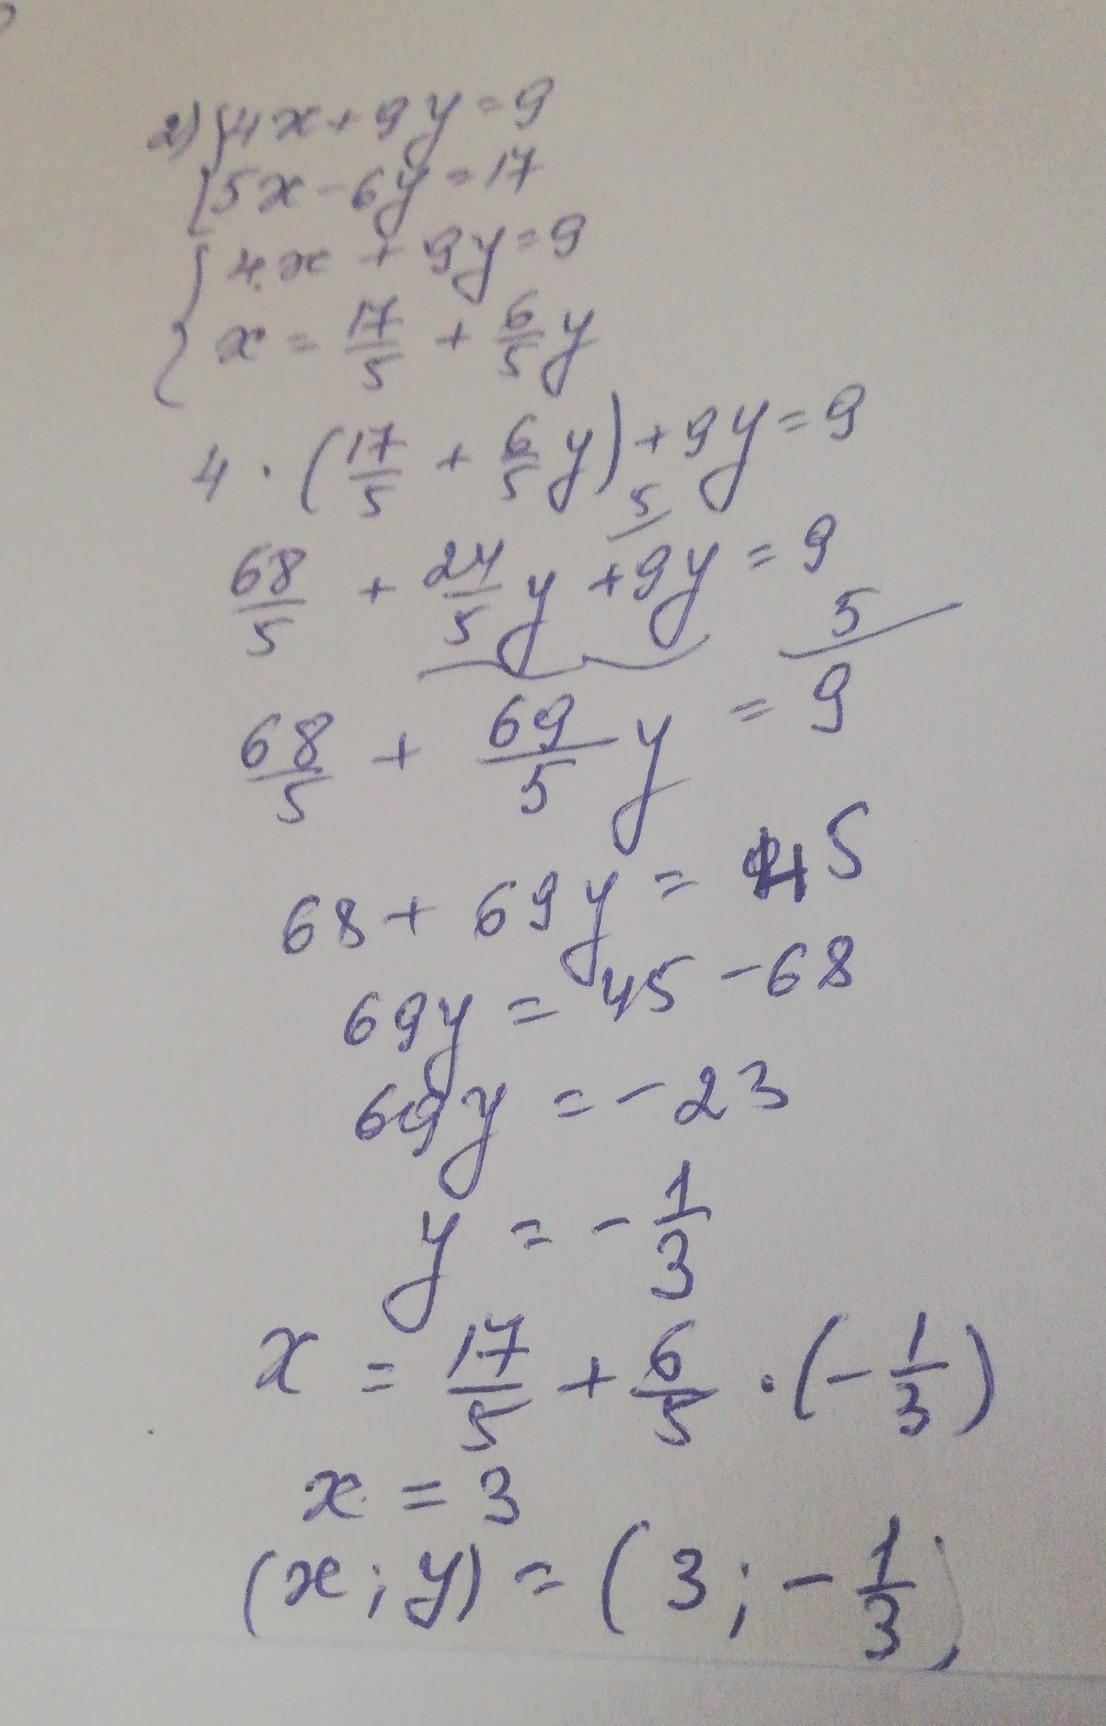 2) { 4x + 9y = 9
{ 5x - 6y = 17
{ 4x + 9y = 9
{ x = 17/5 + 6/5 y
4 · (17/5 + 6/5 y) + 9y = 9
68/5 + 24/5 y + 9y = 9
5
5
68/5 + 69/5 y = 9
68 + 69y = 45
69y = 45 - 68
69y = - 23
y = - 1/3
x = 17/5 + 6/5 · (- 1/3)
x = 3
(x ; y) = (3 ; - 1/3)